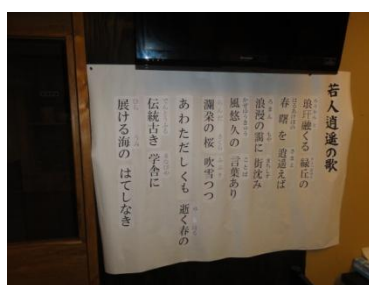 若人逍遥の歌
琅玕融くる 緑丘の
春曙を 逍遥えば
浪漫の靄に 街沈み
風悠久の 言葉あり
瀾朶の桜 吹雪つつ
あわただしくも 逝く春の
伝統古き 学舎に
展ける海の はてしなき